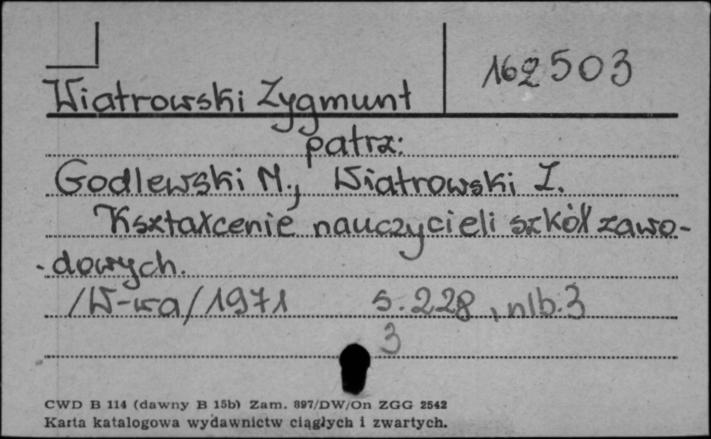 162503
Wiatrowski Zygmunt
patrz:
Godlewski M., Wiatrowski Z.
Kształcenie nauczycieli szkół zawo-
-dowych.
/W-wa/1971 s. 228, nlb. 3
3
CWD B 114 (dawny B 15b) Zam. 897/DW/On ZGG 2542
Karta katalogowa wydawnictw ciągłych i zwartych.